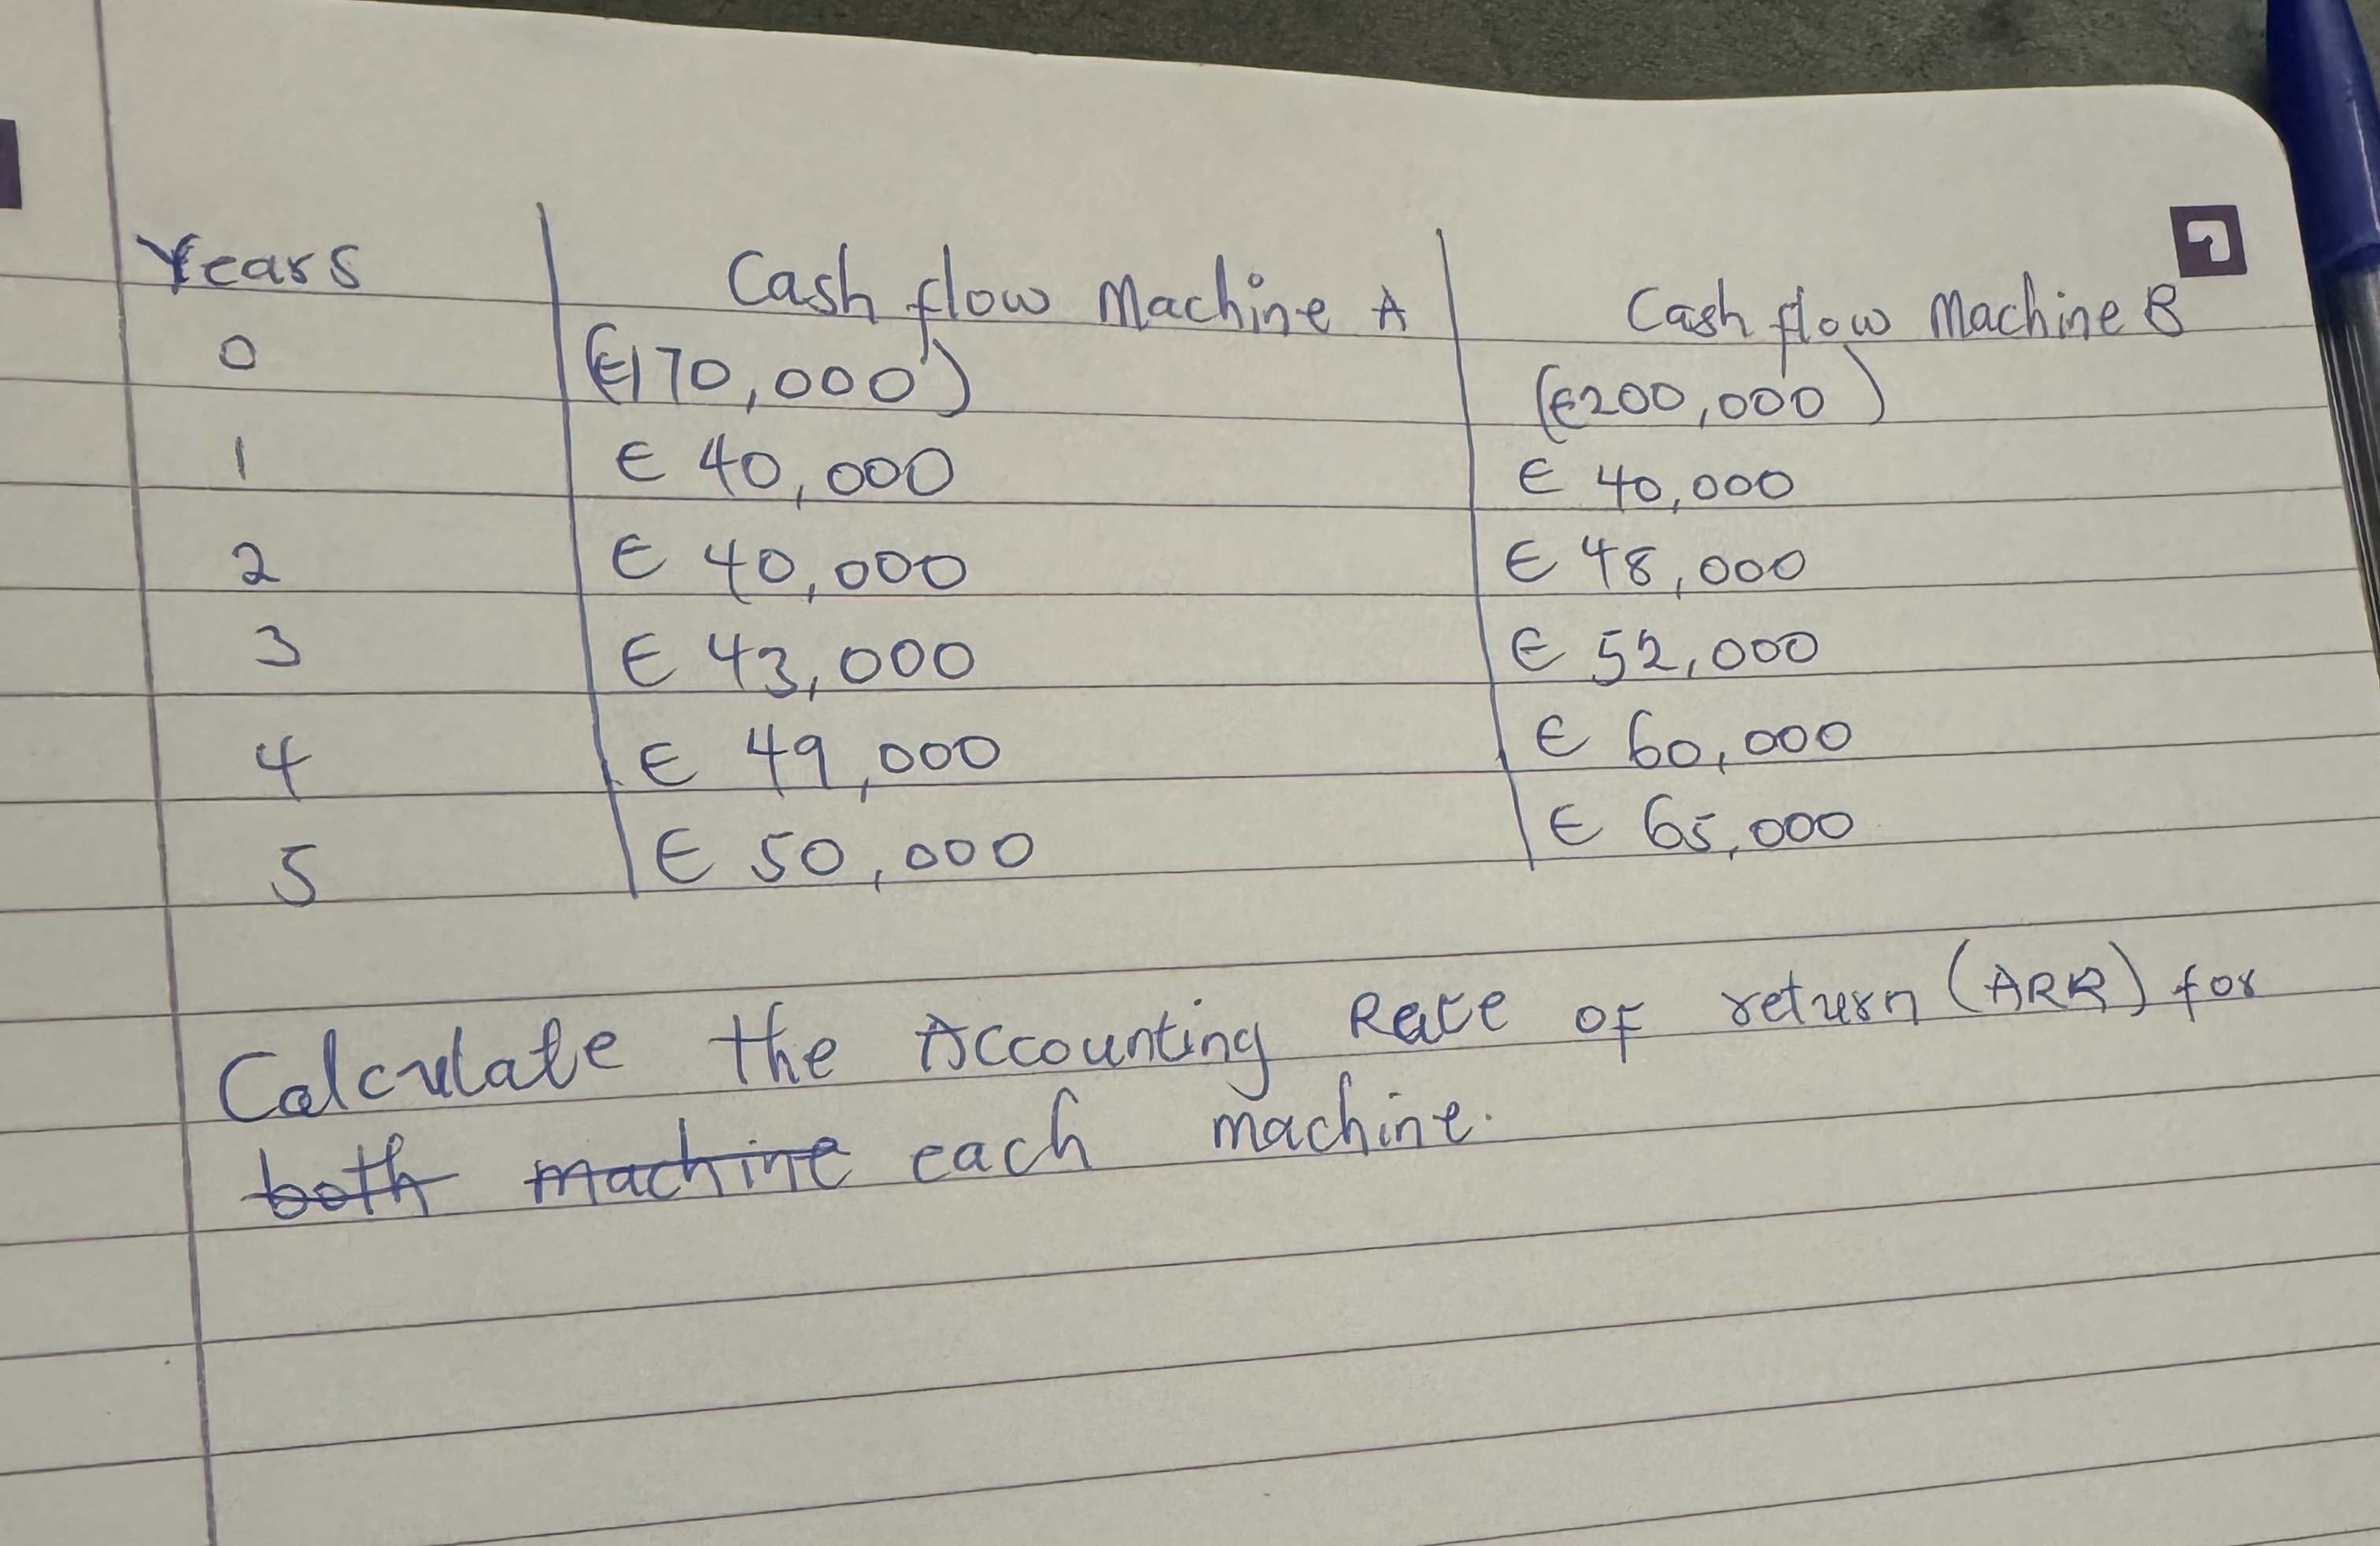 Years Cash flow Machine A Cash flow Machine B
0 (€170,000) (€200,000)
1 € 40,000 € 40,000
2 € 40,000 € 48,000
3 € 43,000 € 52,000
4 € 49,000 € 60,000
5 € 50,000 € 65,000
Calculate the Accounting Rate of return (ARR) for
both machine each machine.